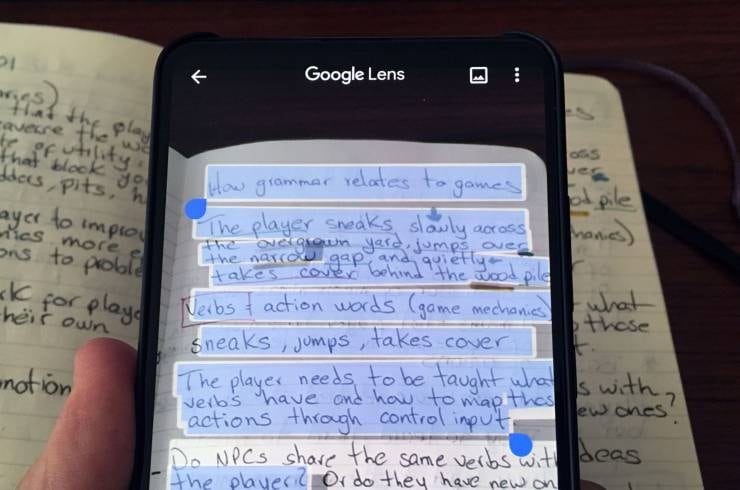 Google Lens
How grammar relates to games
The player sneaks slowly across
the overgrown yard, jumps over
the narrow gap and quietly
takes cover behind the wood pile
Verbs action words (game mechanics)
sneaks, jumps, takes cover
The player needs to be taught what
verbs have and how to map thos
actions through control input
Do NPCs share the same verbs with
the player? Or do they have new on
that the play
of utility
that block yo
pits, h
ayer to improv
more e
ons to proble
for playe
their own
notion
oss
od pile
hanics)
what
those
s with
ew ones?
deas